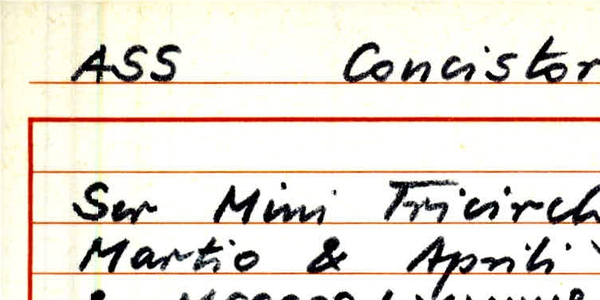 ASS Concistor
Ser Mini Tricirch
Martio & Aprili